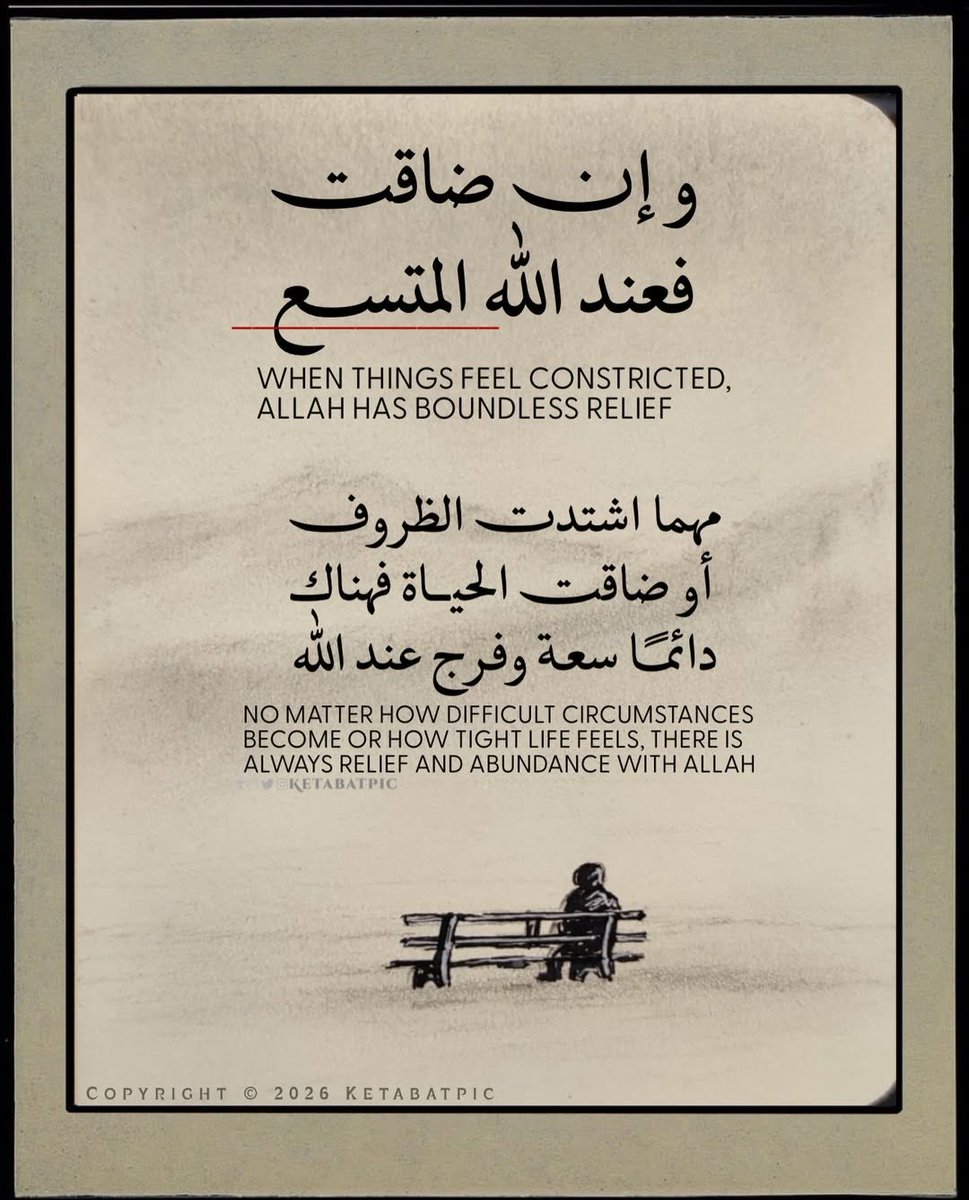 وإن ضاقت
فعند الله المتسع
WHEN THINGS FEEL CONSTRICTED,
ALLAH HAS BOUNDLESS RELIEF
مهما اشتدت الظروف
أو ضاقت الحياة فهناك
دائمًا سعة وفرج عند الله
NO MATTER HOW DIFFICULT CIRCUMSTANCES
BECOME OR HOW TIGHT LIFE FEELS, THERE IS
ALWAYS RELIEF AND ABUNDANCE WITH ALLAH
KETABATPIC
COPYRIGHT © 2026 KETABATPIC